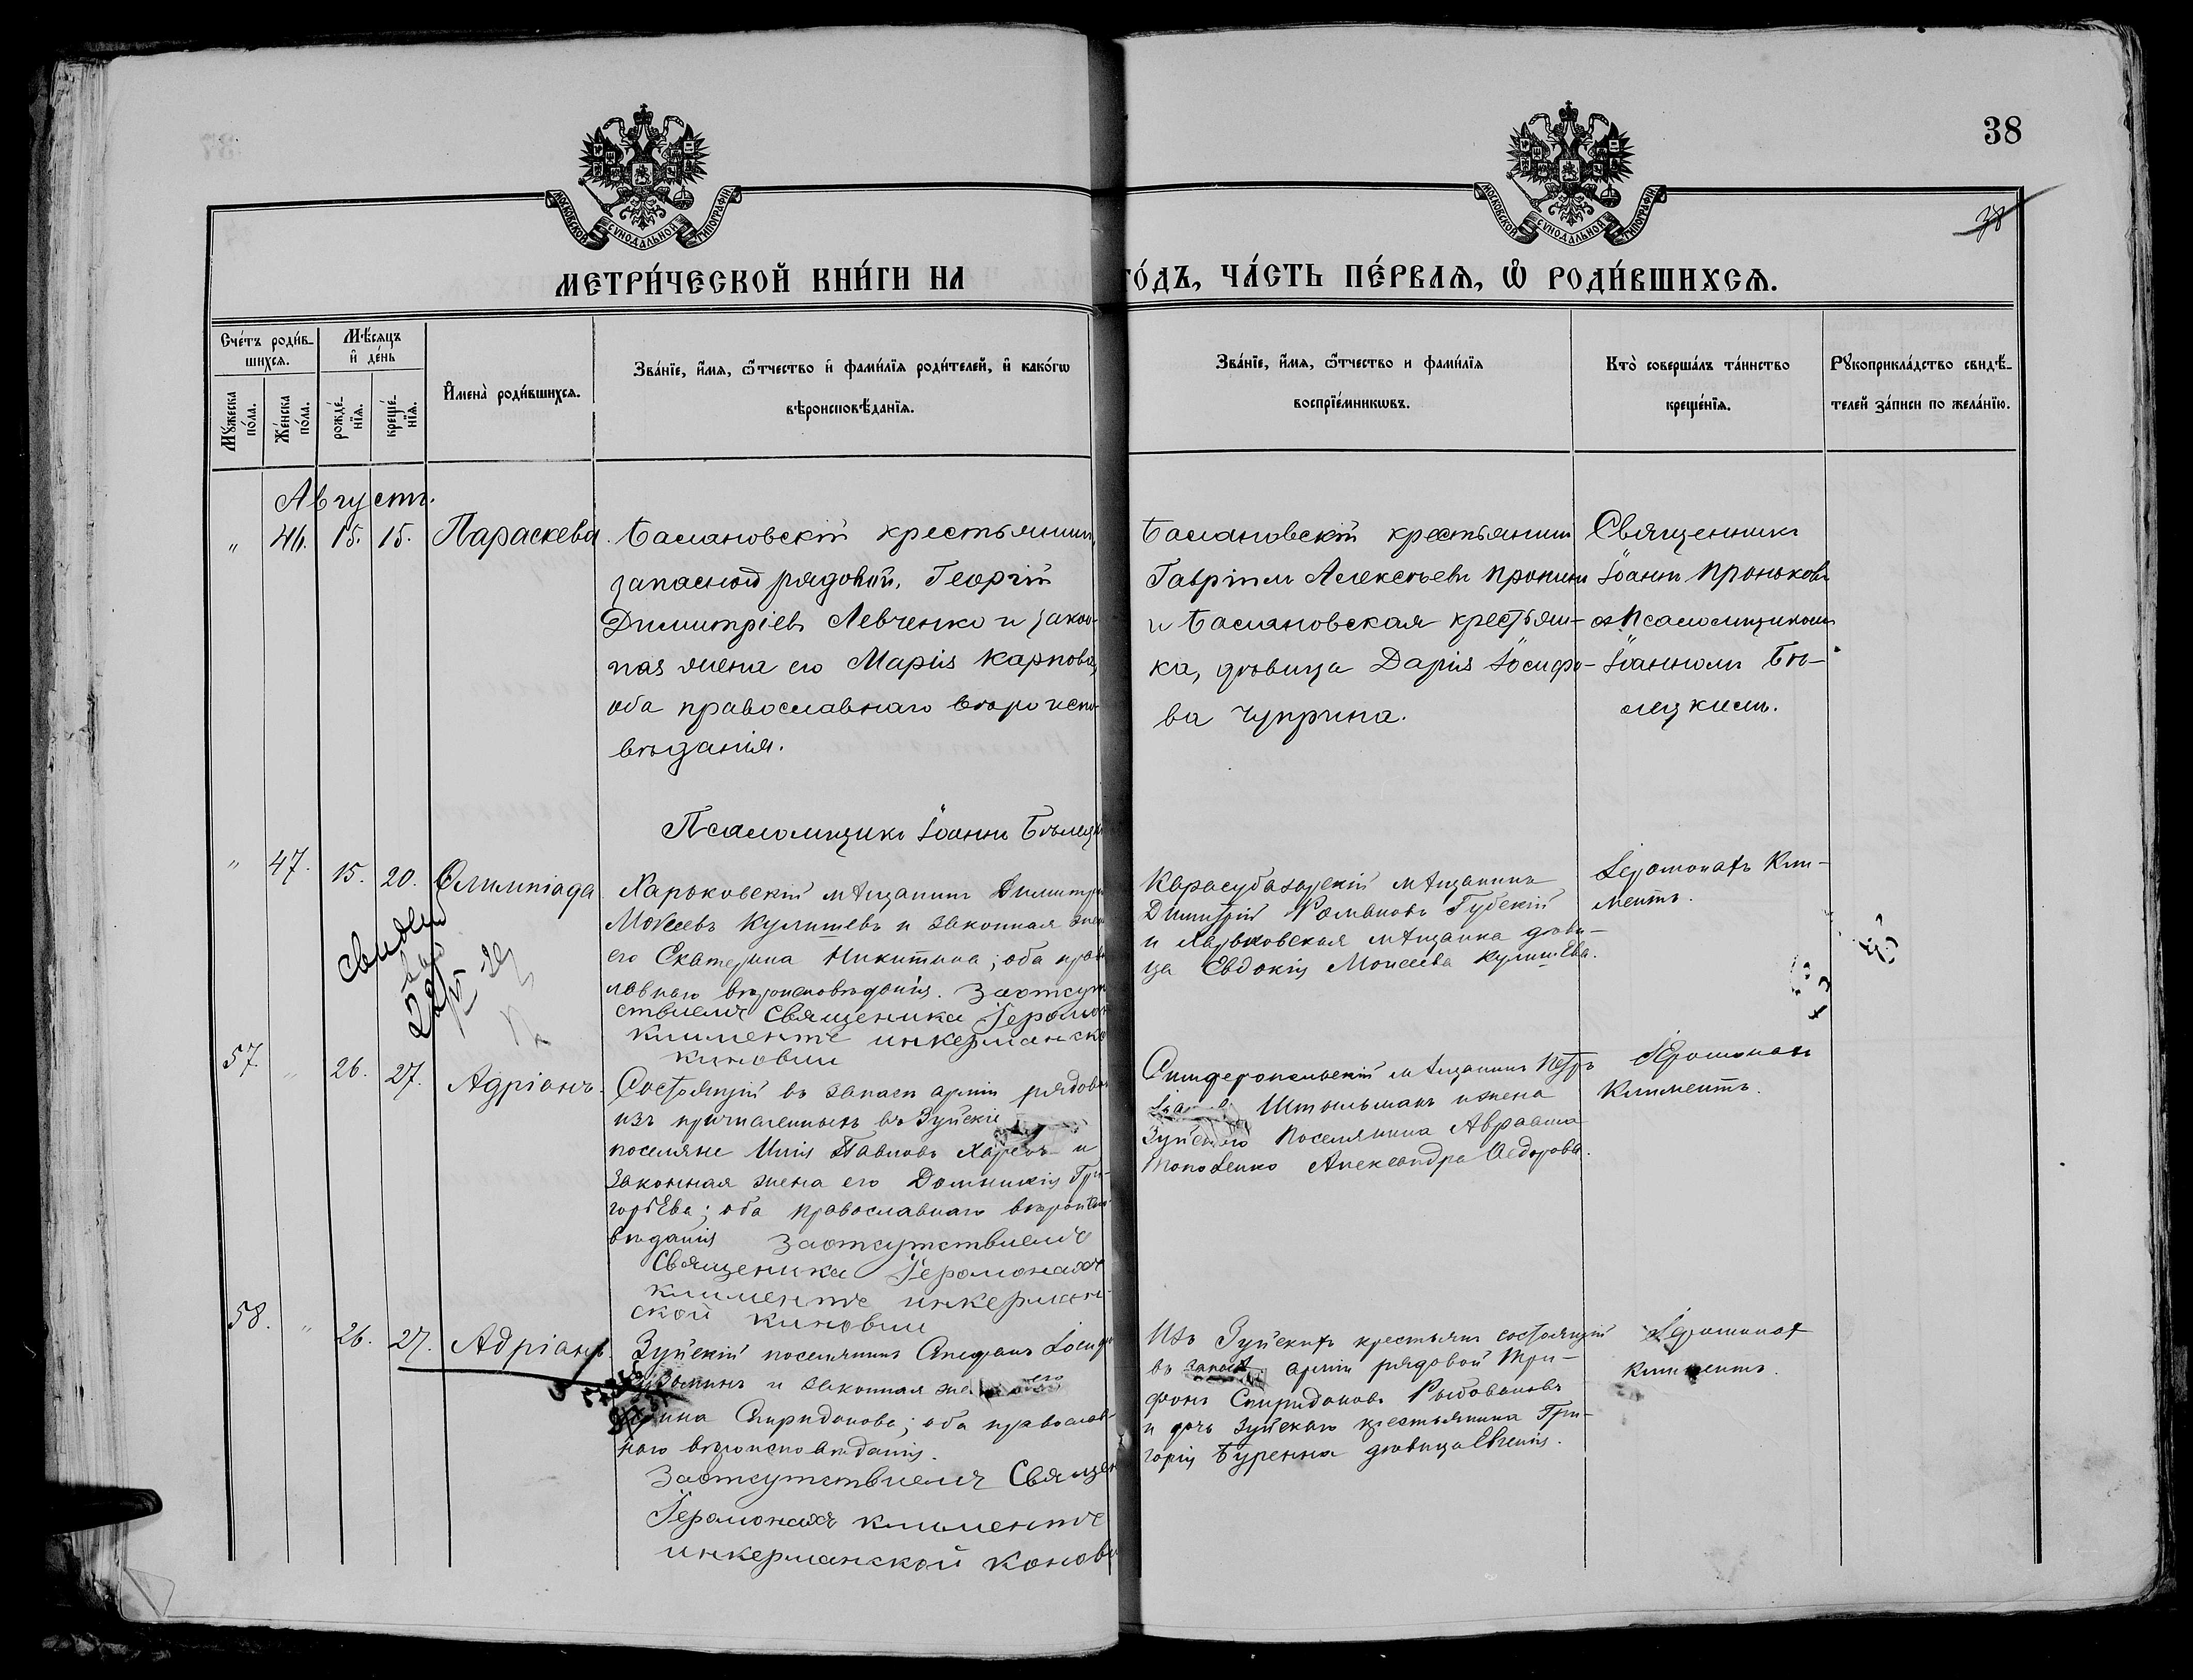 38
38
МОСКОВСКОЙ СѴНОДАЛЬНОЙ ТИПОГРАФІИ
МОСКОВСКОЙ СѴНОДАЛЬНОЙ ТИПОГРАФІИ
МЕТРИ́ЧЕСКОЙ КНИ́ГИ НА ГО́ДЪ, ЧА́СТЬ ПЕ́РВАѦ, Ѡ҆ РОДИ́ВШИХСѦ.
Сче́тъ роди́в-
шихсѧ.
Мѣ́сяцъ
и҆ де́нь
Мꙋ́жеска
по́ла.
Же́нска
по́ла.
рожде́-
нїѧ.
креще́-
нїѧ.
И҆мена̀ роди́вшихсѧ.
Зва́нїе, и҆́мѧ, ѻ҆́тчество и҆ фами́лїѧ роди́телей, и҆ како́гѡ
вѣроисповѣ́данїѧ.
Зва́нїе, и҆́мѧ, ѻ҆́тчество и фами́лїѧ
воспрїе́мникѡвъ.
Кто̀ соверша́лъ та́инство
креще́нїѧ.
Рꙋкоприкла́дство свидѣ́-
телей за́писи по жела́нїю.
Августъ.
" 46. 15. 15. Параскева.
крестьянинъ,
запасной рядовой, Георгій
Димитріевъ Левченко и закон-
ная жена его Марія Карпова,
оба православнаго вѣроиспо-
вѣданія.
крестьянинъ
Гавріилъ Алексѣевъ Пронинъ
и крестьян-
ка, дѣвица Дарія Іосифо-
ва Чуприна.
Священникъ
Іоаннъ Проньковъ
съ Псаломщикомъ
Іоанномъ Бѣ-
лецкимъ.
Псаломщикъ Іоаннъ Бѣлецк
" 47. 15. 20. Олимпіада
Харьковскій мѣщанинъ Димитрі
Моѵсеевъ Кулишевъ и законная жен
его Екатерина Никитина; оба прав
лавнаго вѣроисповѣданія. Заотсут
ствиемъ Священика Іеромон
Климентъ инкерманско
киновии
Карасубазарскій мѣщанинъ
Димитрій Романовъ Губскій
и Харьковская мѣщанка дѣви-
ца Евдокія Моисеева Кулишева.
Іеромонахъ Кли-
ментъ.
57. " 26. 27. Адріанъ.
Состоящій въ запасѣ арміи рядовой
изъ причисленныхъ въ Зуйскіе
поселяне Илія Павловъ и
законная жена его Домникія Гри-
горьева; оба православнаго вѣроиспо-
вѣданія Заотсутствиемъ
Священика Іеромонахъ
Климентъ инкерман-
ской киновии
Симферопольскій мѣщанинъ Петръ
Штыльманъ и жена
Зуйскаго поселянина Авраама
Александра Ѳедорова.
Іеромонахъ
Климентъ.
58. " 26. 27. Адріанъ.
Зуйскій поселянинъ Стефанъ Іосиф
и законная жена его
Спиридонова; оба православ-
наго вѣроисповѣданія.
Заотсутствиемъ Священ
Іеромонахъ Климентъ
инкерманской конови
Изъ Зуйскихъ крестьянъ состоящій
въ запасѣ арміи рядовой Три-
фонъ Спиридоновъ
и дочь Зуйскаго крестьянина Гри-
горія дѣвица Евгенія.
Іеромонахъ
Климентъ.